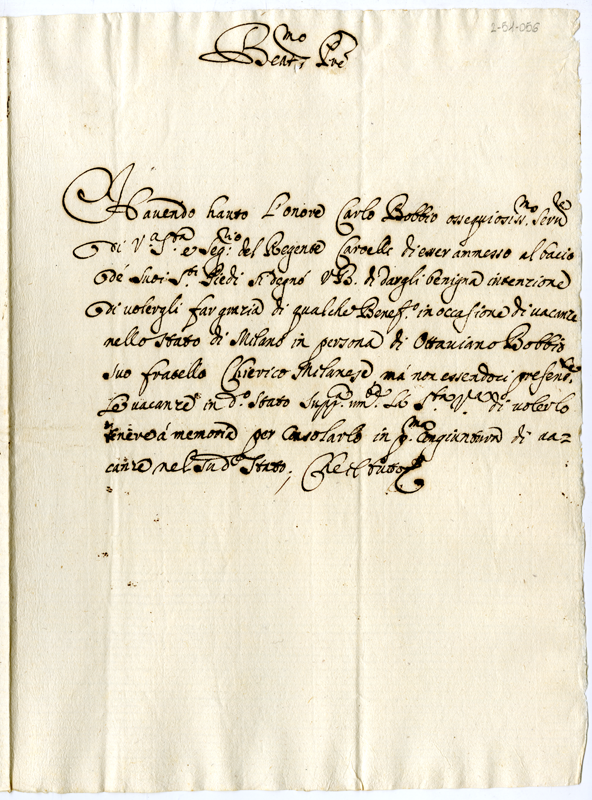 2-51-056
Beat.mo Pre
Havendo hauto l'onore Carlo Bobbio ossequiosiss.mo Serv.e
di V.a S.tà e Seg.rio del Regente di esser ammesso al bacio
de suoi S.ti Piedi si degnò V.B. di dargli benigna intenzione
di volergli far grazia di qualche Benef.o in occasione di vacanze
nello stato di Milano in persona di Ottaviano Bobbio
suo fratello Chierico Milanese, má non essendoci presen.te
vacanze in d.o Stato supp.a um.te La S.tà V.a di volerlo
tener á memoria per consolarlo in p.ma congiuntura di va=
canza nel sud.o Stato; Che il tutto